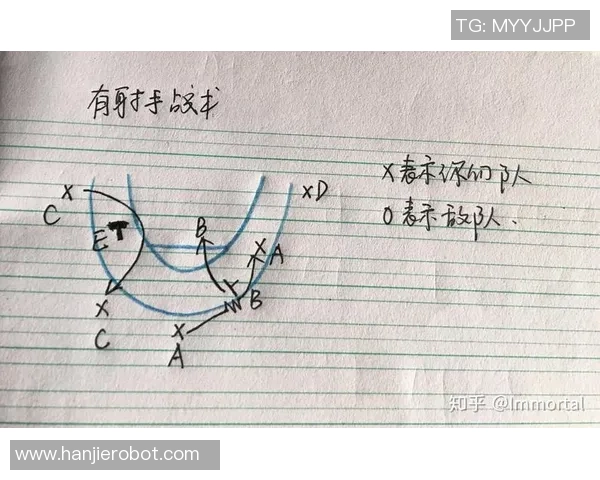 TG: MYYJJPP
有射手战术
X表示你的队
O表示敌队.
X
C
E
X
C
B
X
A
B
X
A
XD
知乎 @Immortal
www.hanjierobot.com